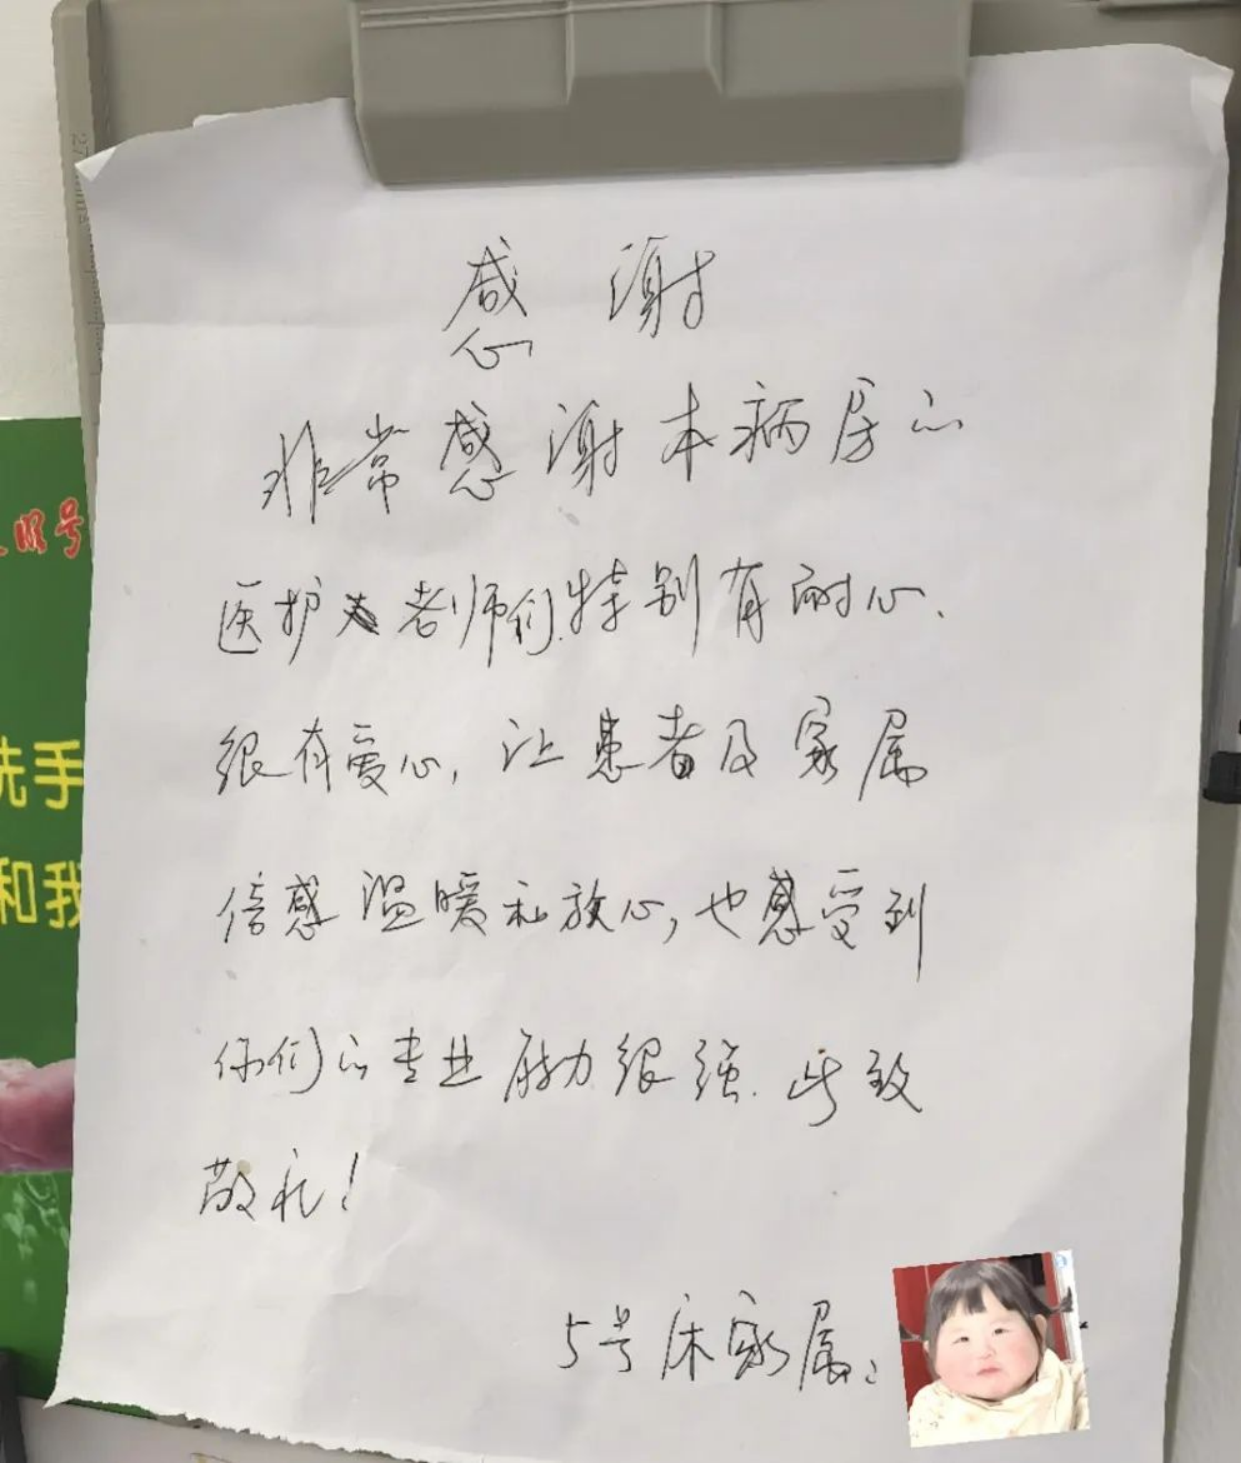 感谢
非常感谢本病房的
医护老师们.特别有耐心.
很有爱心,让患者及家属
倍感温暖和放心,也感受到
你们的专业能力很强.此致
敬礼!
5号床家属:
洗手
和我